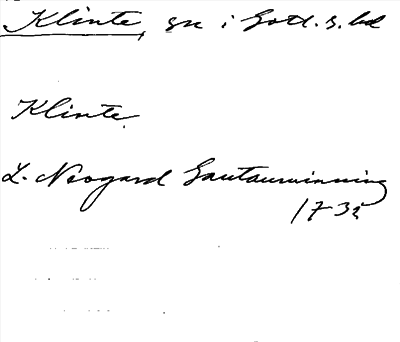 Klinte, sn i Gotl. s. hd
Klinte
L. Neogard Gautauminning
1732